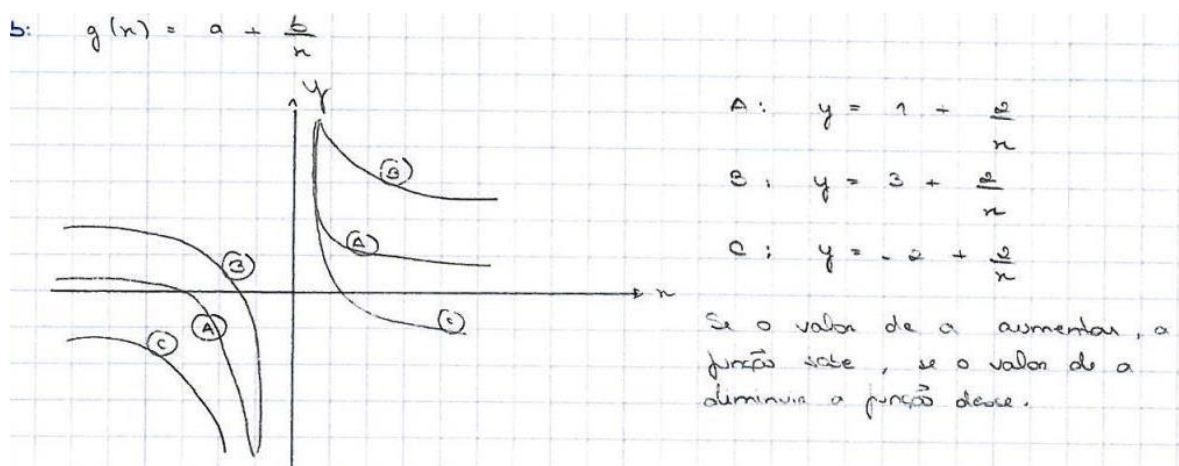 b: g(x) = a + b/x
y
B
A
B
A
C
C
x
A: y = 1 + 2/x
B: y = 3 + 2/x
C: y = -2 + 2/x
Se o valor de a aumentar, a
função sobe, se o valor de a
diminuir a função desce.